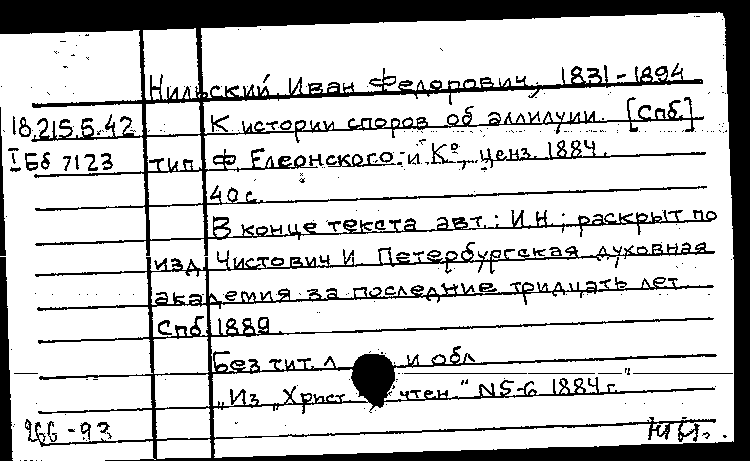 Нильский, Иван Федорович, 1831-1894
18.215.5.42 К истории споров об аллилуии. [Спб.]
IБб 7123 тип. Ф. Елеонского и Кº, ценз. 1884.
40 с.
В конце текста авт.: И.Н.; раскрыт по
изд. Чистович И. Петербургская духовная
академия за последние тридцать лет.
Спб. 1889.
Без тит. л. и обл.
"Из "Христ. чтен." N5-6 1884 г."
266-93